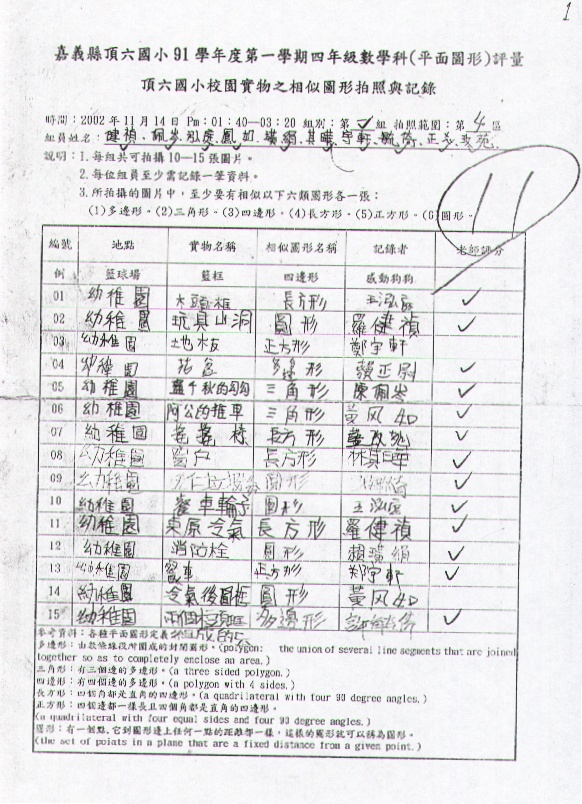 1
嘉義縣頂六國小91學年度第一學期四年級數學科(平面圖形)評量
頂六國小校園實物之相似圖形拍照與記錄
時間：2002年11月14日 Pm：01:40—03:20 組別：第 組 拍照範圍：第4區
組員姓名：健禎、佩岑、泓
說明：1.每組共可拍攝10—15張圖片。
2.每位組員至少需記錄一筆資料。
3.所拍攝的圖片中，至少要有相似以下六類圖形各一張：
(1)多邊形。(2)三角形。(3)四邊形。(4)長方形。(5)正方形。(6)圓形。
11
編號 地點 實物名稱 相似圖形名稱 記錄者 老師評分
例 籃球場 籃框 四邊形 感動狗狗
01 幼稚園 木頭框 長方形 王泓
02 幼稚園 玩具山洞 圓形 羅健禎
03 幼稚園 地板 正方形 鄭宇軒
04 幼稚園 多邊形
05 幼稚園 盪千秋的勾勾 三角形 陳佩岑
06 幼稚園 阿公的推車 三角形 黃风
07 幼稚園 長方形
08 幼稚園 窗户 長方形 林其曄
09 幼稚園 圓形
10 幼稚園 餐車輪子 圓形 王泓
11 幼稚園 東原冷氣 長方形 羅健禎
12 幼稚園 消防栓 圓形 賴瑞絹
13 幼稚園 餐車 正方形 鄭宇軒
14 幼稚園 冷氣後圓框 圓形 黃风
15 幼稚園 兩個 多邊形
組成的
參考資料：各種平面圖形定義
多邊形：由數條線段所圍成的封閉圖形。(polygon: the union of several line segments that are joined
together so as to completely enclose an area.)
三角形：有三個邊的多邊形。(a three sided polygon.)
四邊形：有四個邊的多邊形。(a polygon with 4 sides.)
長方形：四個角都是直角的四邊形。(a quadrilateral with four 90 degree angles.)
正方形：四個邊都一樣長且四個角都是直角的四邊形。
(a quadrilateral with four equal sides and four 90 degree angles.)
圓形：有一個點，它到圖形邊上任何一點的距離都一樣，這樣的圖形就可以稱為圓形。
(the set of points in a plane that are a fixed distance from a given point.)